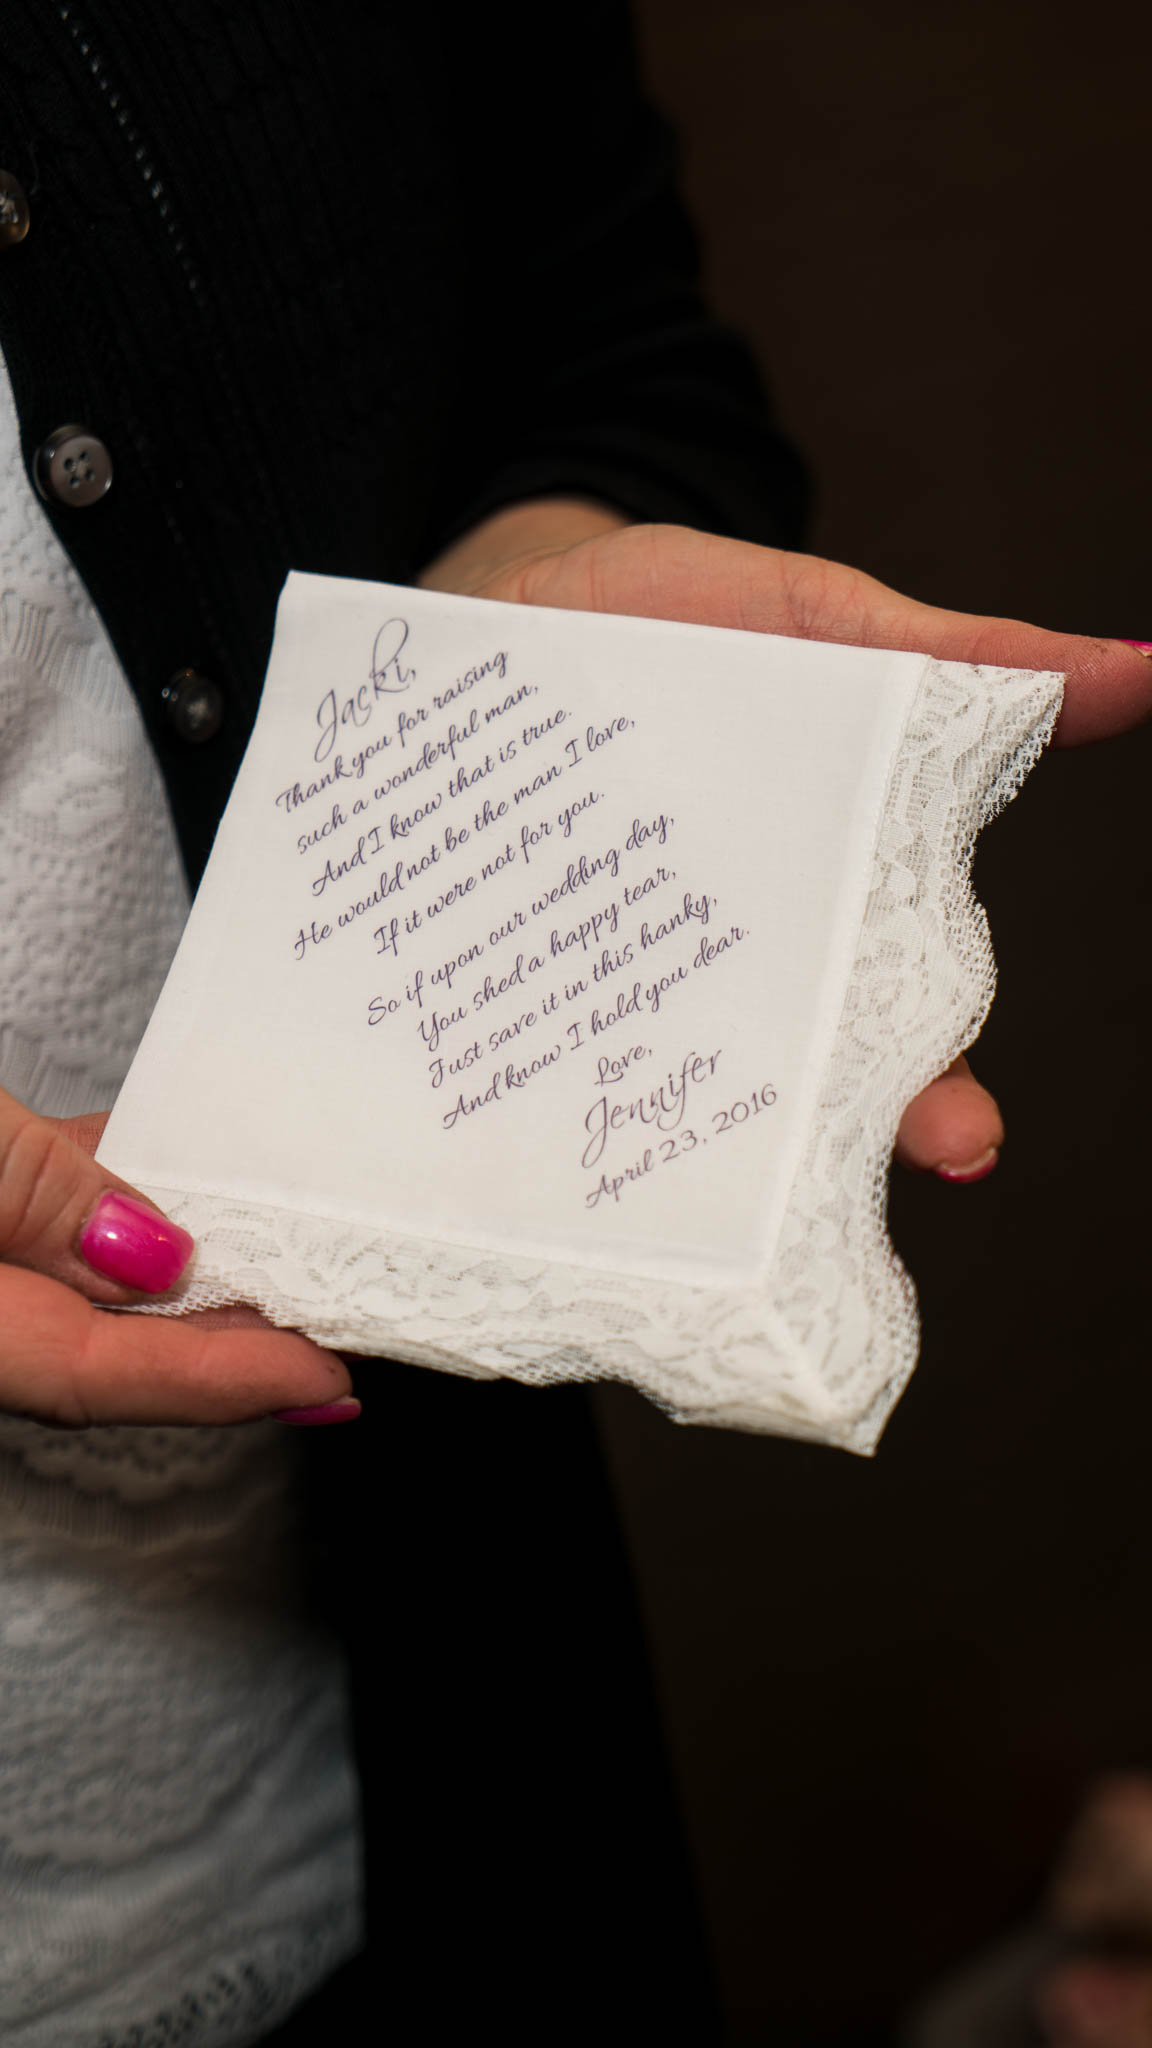 Jacki,
Thank you for raising
such a wonderful man,
And I know that is true.
He would not be the man I love,
If it were not for you.
So if upon our wedding day,
You shed a happy tear,
Just save it in this hanky,
And know I hold you dear.
Love,
Jennifer
April 23, 2016